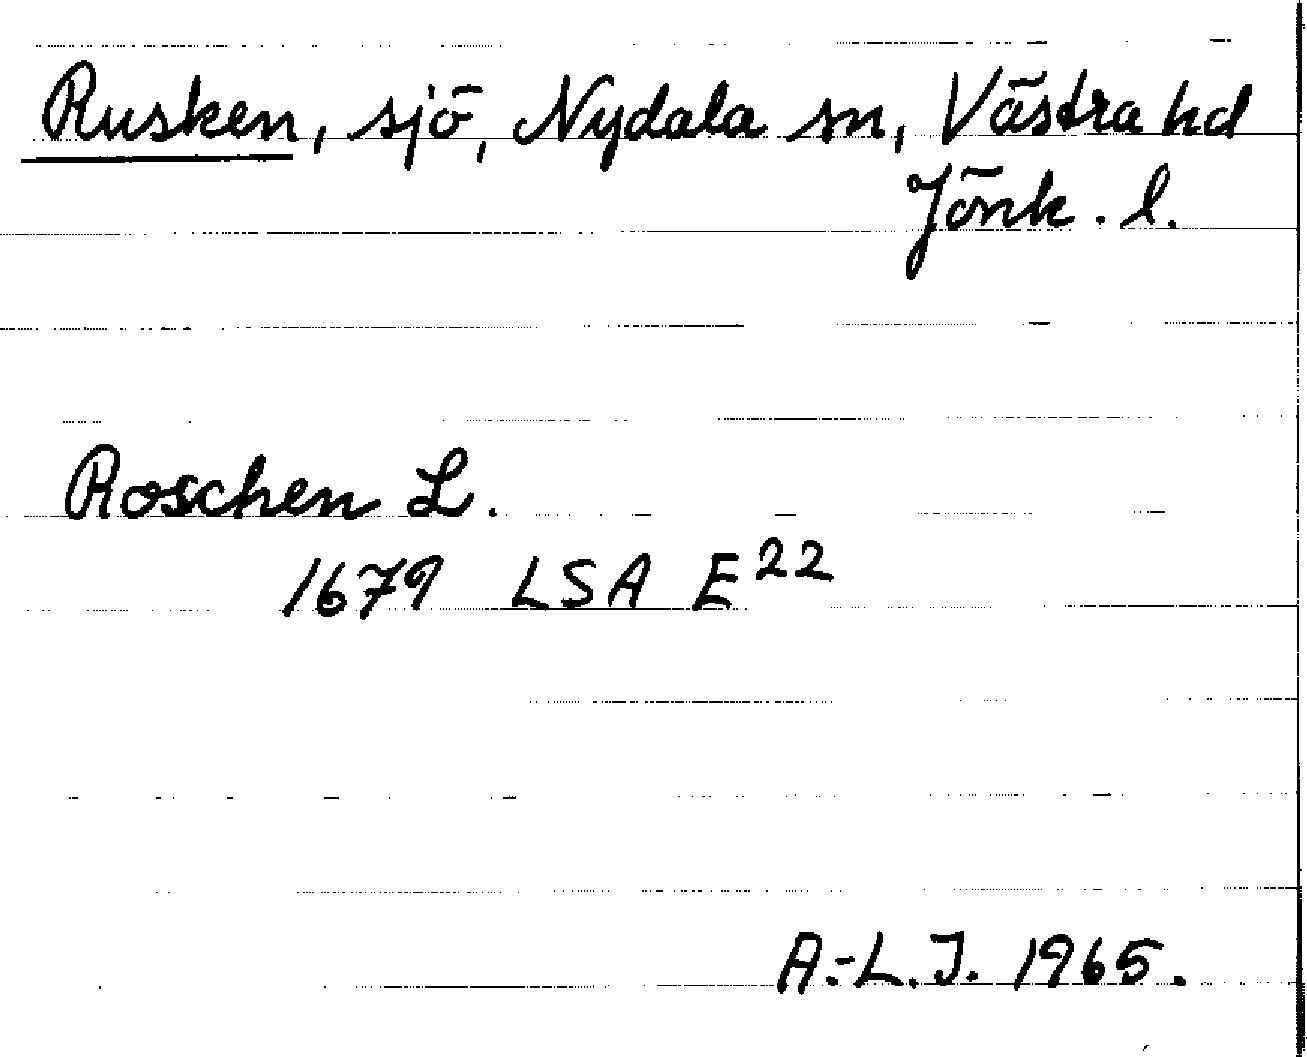 Rusken, sjö, Nydala sn, Västra hd
Jönk. l.
Roschen L.
1679 LSA E22
A.-L.J. 1965.